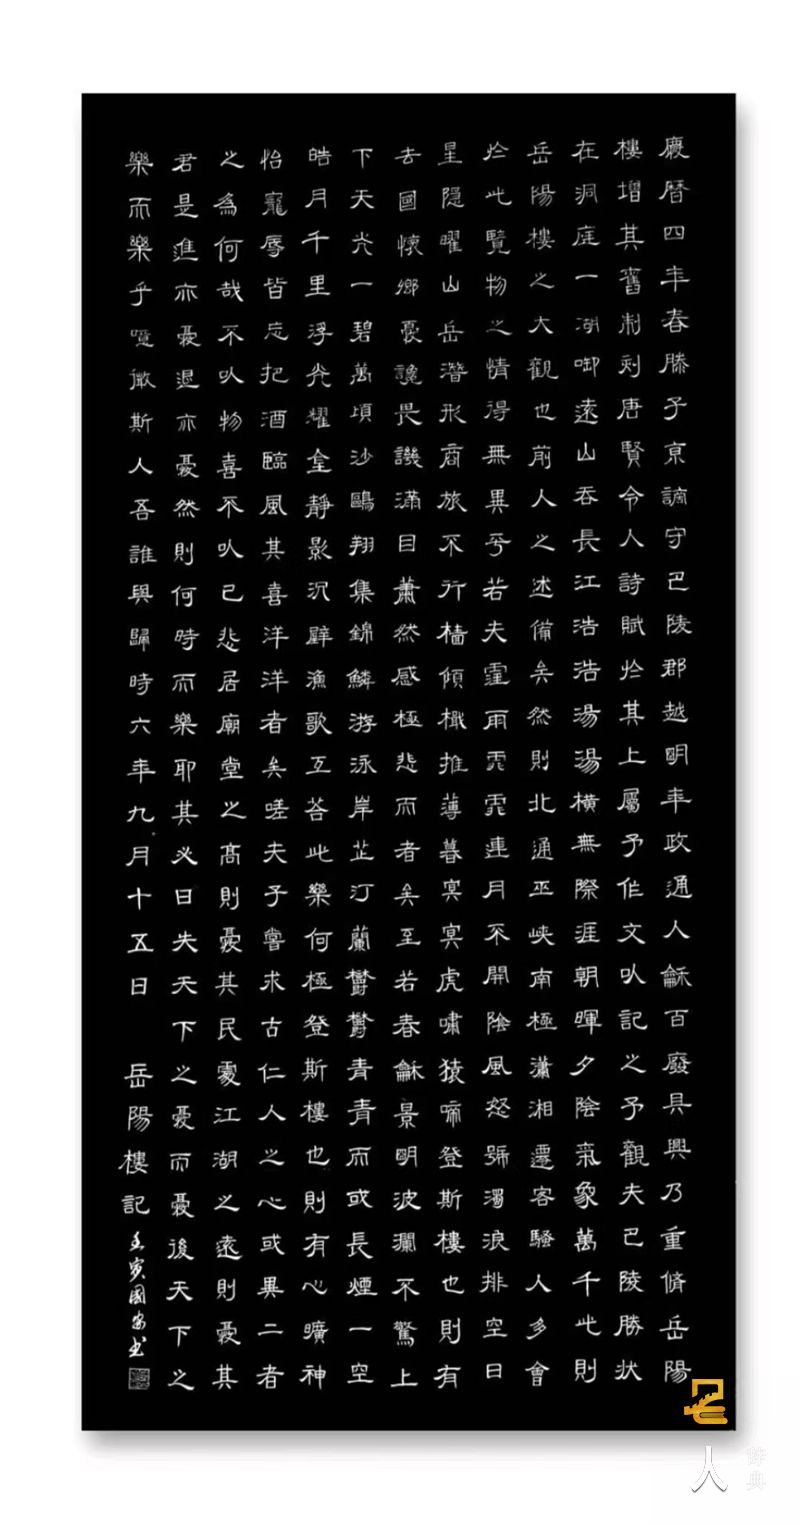 慶曆四年春滕子京謫守巴陵郡越明年政通人龢百廢具興乃重脩岳陽
樓增其舊制刻唐賢今人詩賦於其上屬予作文以記之予觀夫巴陵勝狀
在洞庭一湖銜遠山吞長江浩浩湯湯橫無際涯朝暉夕陰氣象萬千此則
岳陽樓之大觀也前人之述備矣然則北通巫峽南極瀟湘遷客騷人多會
於此覽物之情得無異乎若夫霪雨霏霏連月不開陰風怒號濁浪排空日
星隱曜山岳潛形商旅不行檣傾楫摧薄暮冥冥虎嘯猿啼登斯樓也則有
去國懷鄉憂讒畏譏滿目蕭然感極悲而者矣至若春龢景明波瀾不驚上
下天光一碧萬頃沙鷗翔集錦鱗游泳岸芷汀蘭鬱鬱青青而或長煙一空
皓月千里浮光耀金靜影沉璧漁歌互答此樂何極登斯樓也則有心曠神
怡寵辱皆忘把酒臨風其喜洋洋者矣嗟夫予嘗求古仁人之心或異二者
之為何哉不以物喜不以己悲居廟堂之高則憂其民處江湖之遠則憂其
君是進亦憂退亦憂然則何時而樂耶其必曰先天下之憂而憂後天下之
樂而樂乎噫微斯人吾誰與歸時六年九月十五日 岳陽樓記 壬寅國安書
人 辞典